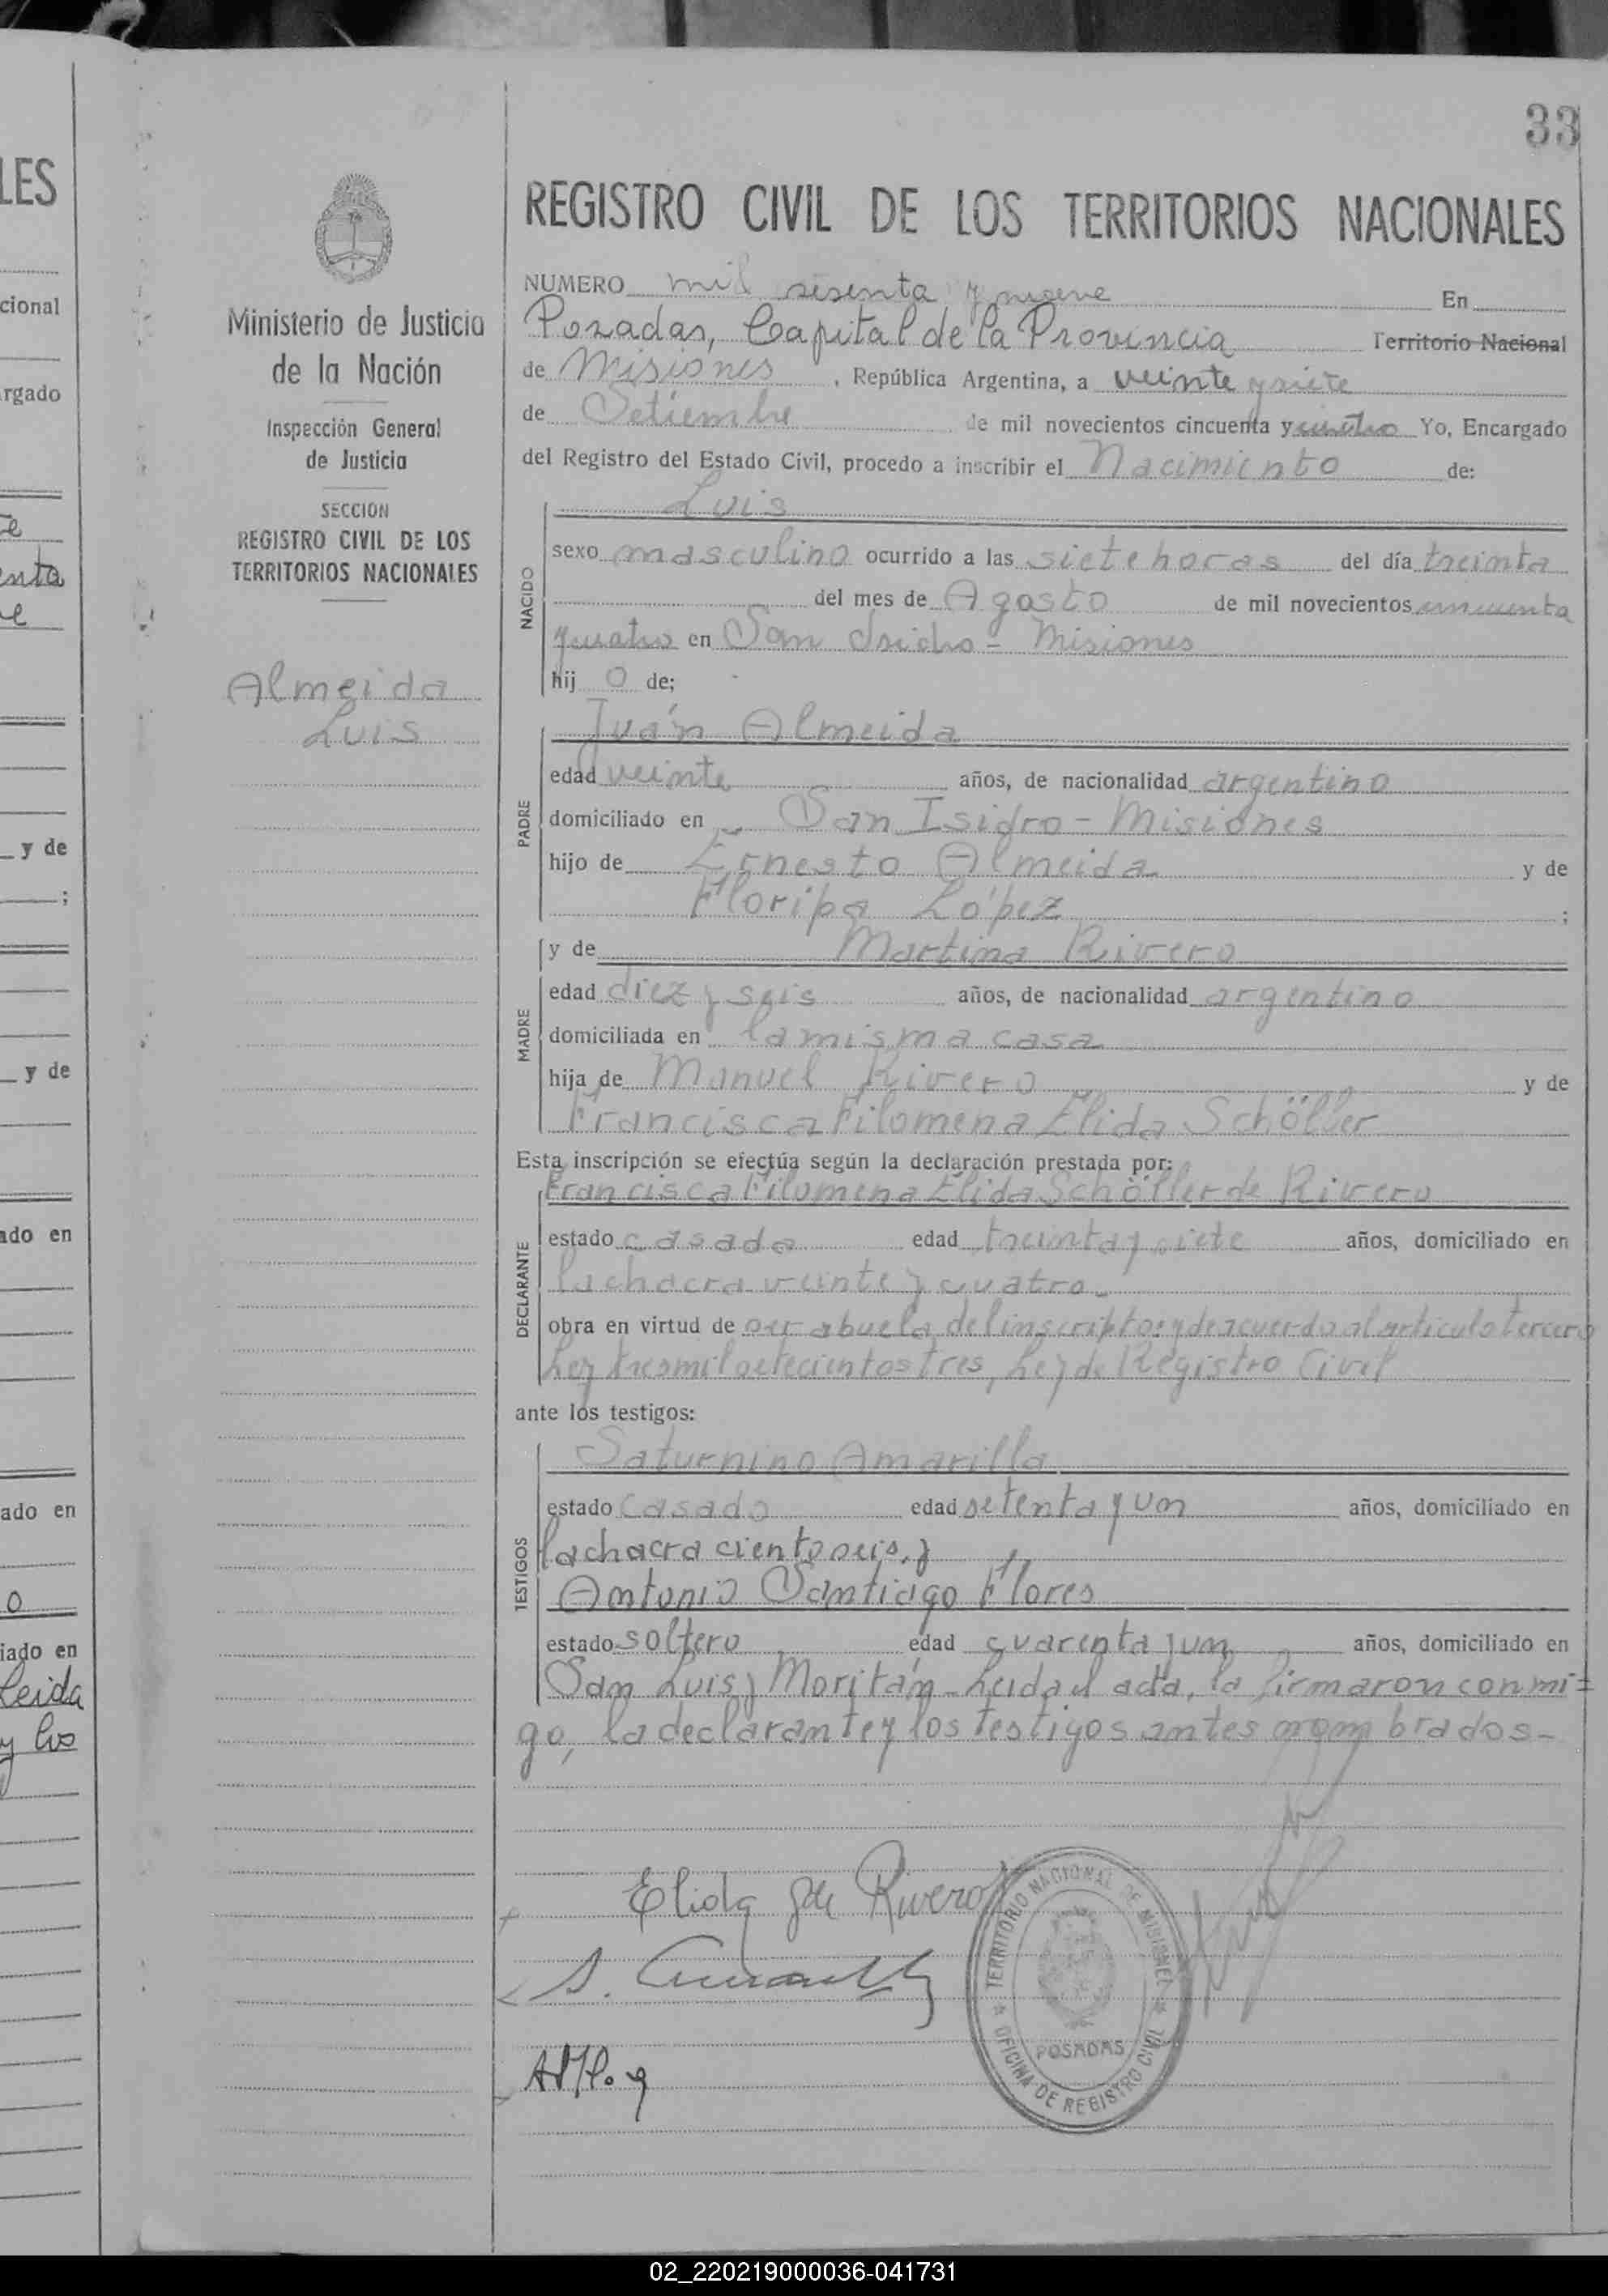 33
LES
REGISTRO CIVIL DE LOS TERRITORIOS NACIONALES
Ministerio de Justicia
de la Nación
Inspección General
de Justicia
SECCION
REGISTRO CIVIL DE LOS
TERRITORIOS NACIONALES
Almeida
Luis
NUMERO mil sesenta y nueve En
Pozadas, Capital de la Provincia Territorio Nacional
de Misiones, República Argentina, a veinte y siete
de Setiembre de mil novecientos cincuenta y cuatro Yo, Encargado
del Registro del Estado Civil, procedo a inscribir el Nacimiento de:
NACIDO
Luis
sexo masculino ocurrido a las siete horas del día treinta
del mes de Agosto de mil novecientos cincuenta
y cuatro en San Isidro - Misiones
hij o de;
PADRE
Juán Almeida
edad veinte años, de nacionalidad argentino
domiciliado en San Isidro - Misiones
hijo de Ernesto Almeida y de
Floripa López ;
MADRE
y de Martina Rivero
edad diez y seis años, de nacionalidad argentino
domiciliada en la misma casa
hija de Manuel Rivero y de
Francisca Filomena Elida Schöller
Esta inscripción se efectúa según la declaración prestada por:
DECLARANTE
Francisca Filomena Elida Schöller de Rivero
estado casada edad treinta y siete años, domiciliado en
la chacra veinte y cuatro -
obra en virtud de ser abuela del inscripto; y de acuerdo al artículo tercero
Ley tres mil setecientos tres, Ley de Registro Civil
ante los testigos:
TESTIGOS
Saturnino Amarilla
estado casado edad setenta y un años, domiciliado en
la chacra ciento seis, y
Antonio Santiago Flores
estado soltero edad cuarenta y un años, domiciliado en
San Luis y Moritán - Leida el acta, la firmaron conmi=
go, la declarante y los testigos antes nombrados -
Elida S de Rivero
TERRITORIO NACIONAL DE MISIONES
POSADAS
OFICINA DE REGISTRO CIVIL
cional
rgado
te
enta
e
y de
;
y de
ado en
ado en
o
iado en
Leida
y los
02_220219000036-041731